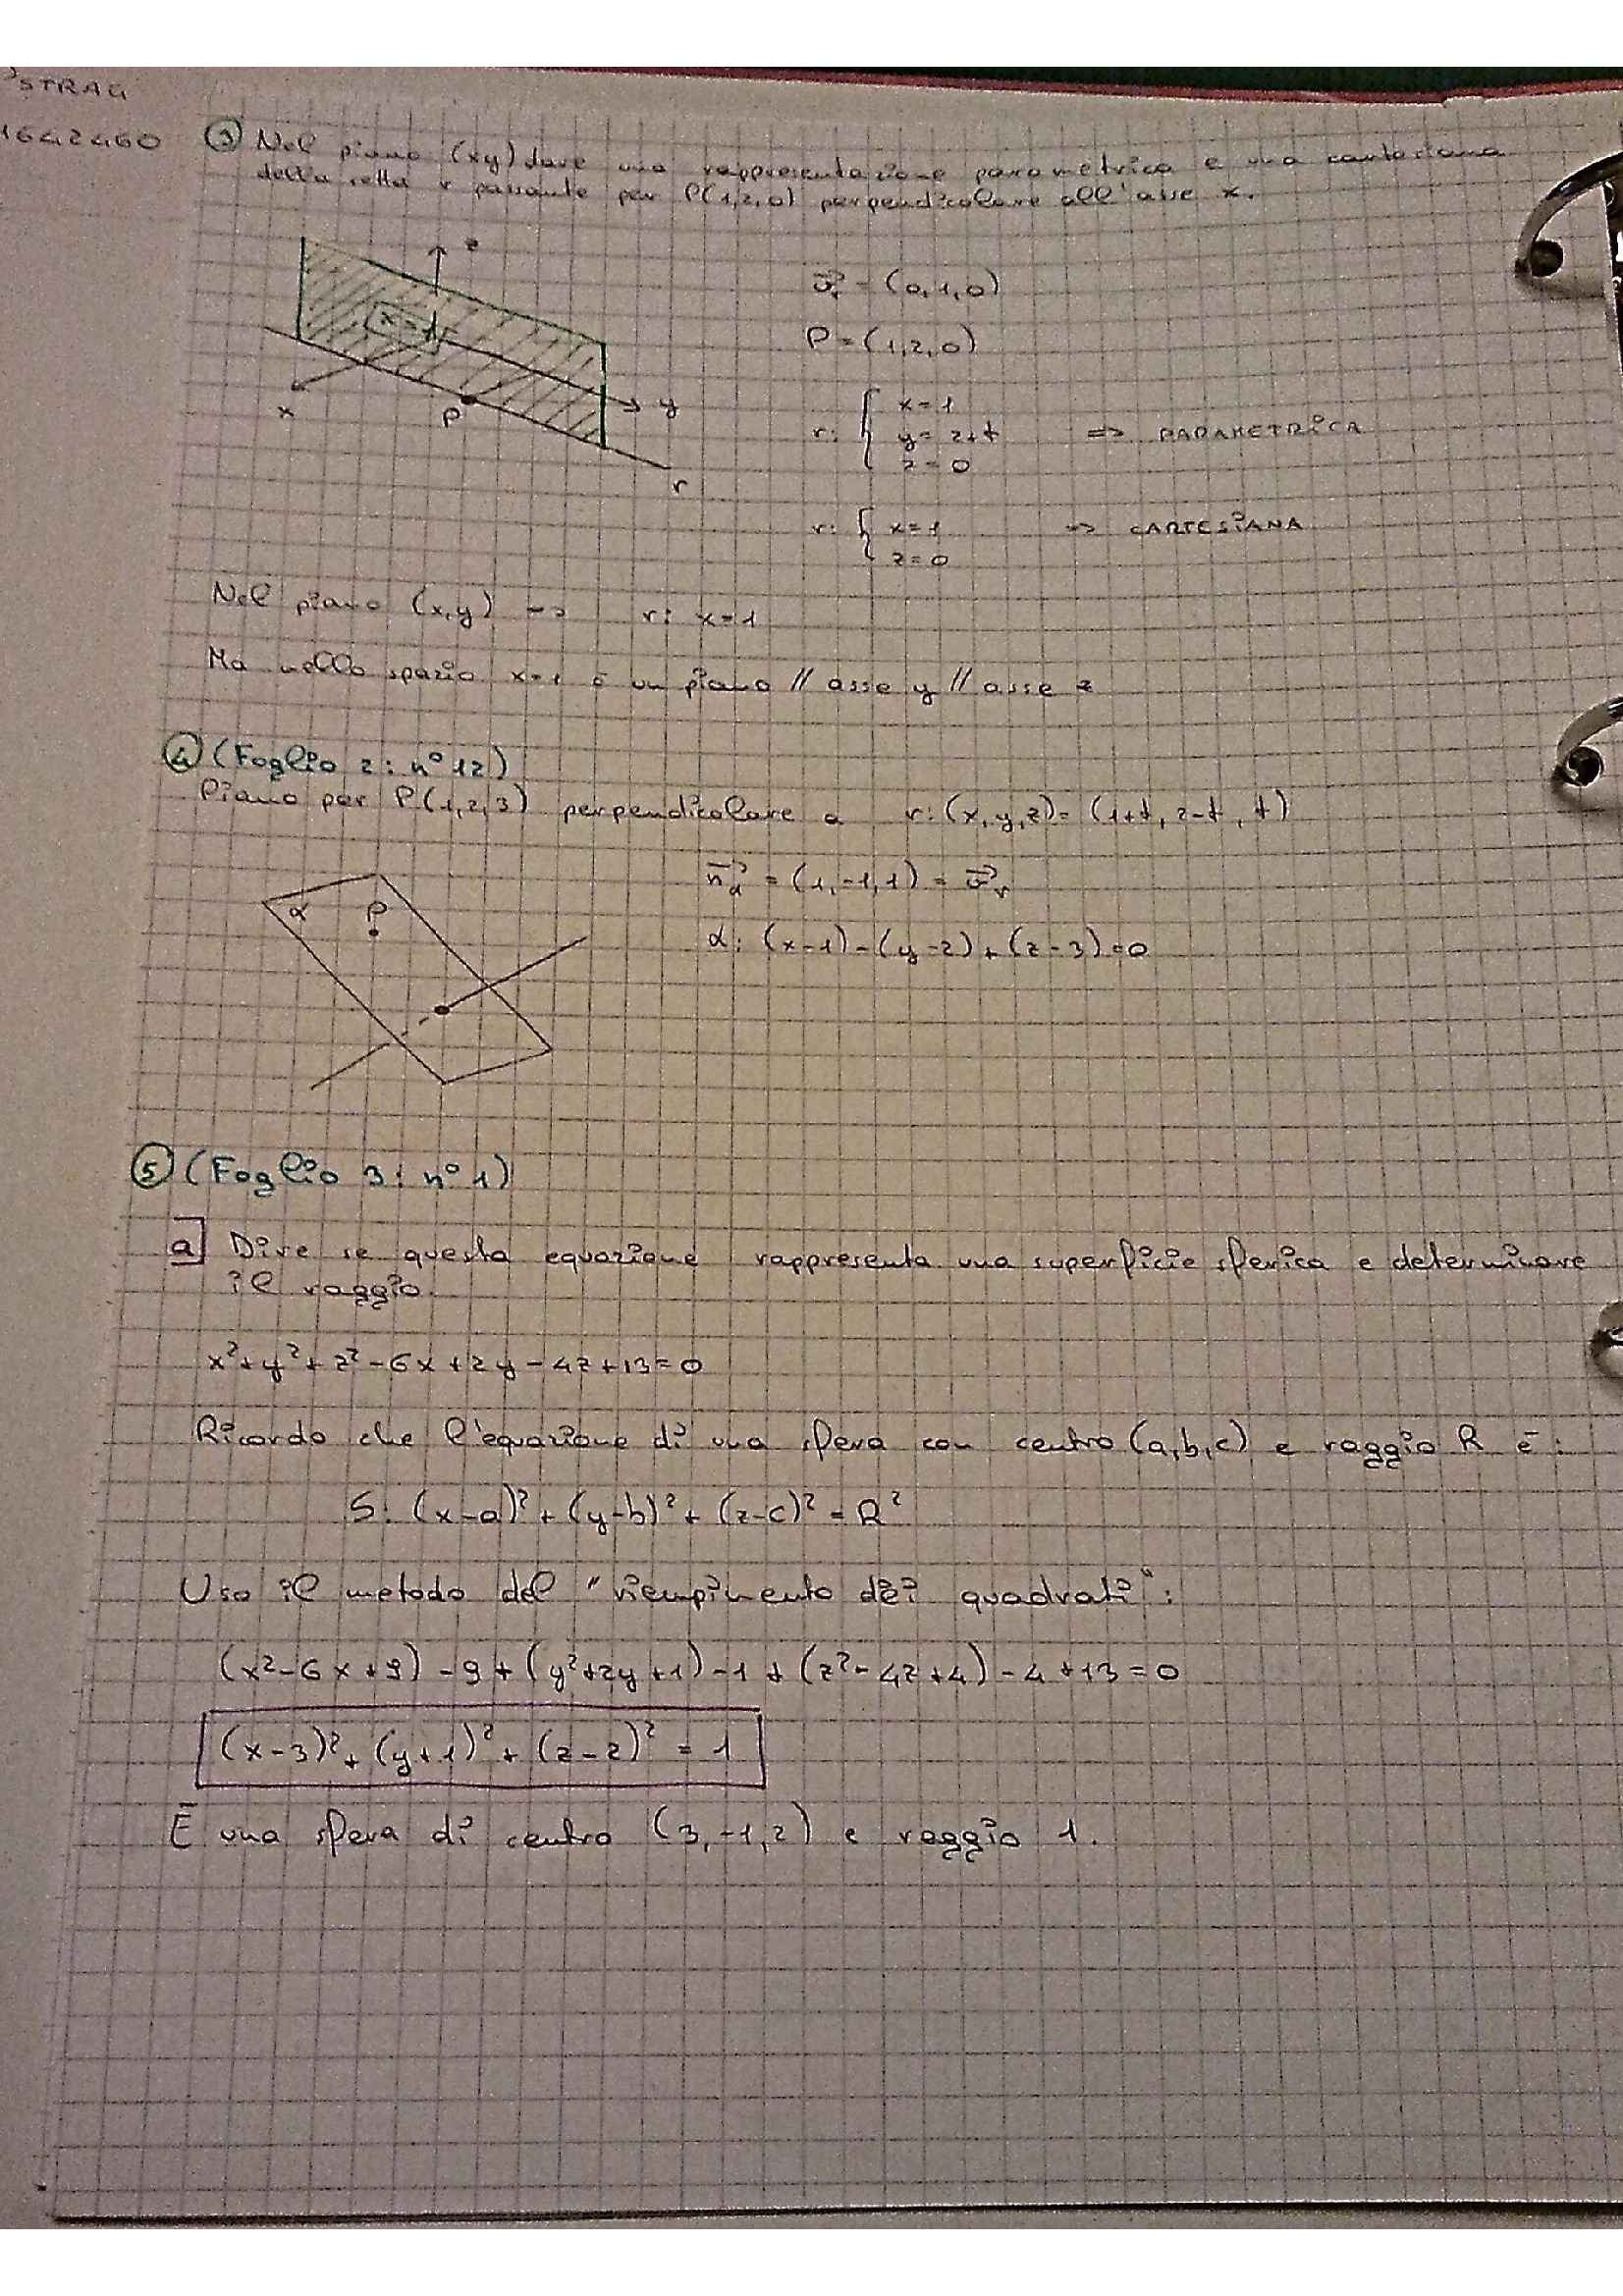 STRAG
1642460
③ Nel piano (xy) dare una rappresentazione parametrica e una cartesiana
della retta r passante per P(1,2,0) perpendicolare all'asse x.
z
x=1
x
P
y
r
v⃗r = (0,1,0)
P = (1,2,0)
r: { x=1
y= 2+t => PARAMETRICA
z=0
r: { x=1 => CARTESIANA
z=0
Nel piano (x,y) -> r: x=1
Ma nello spazio x=1 è un piano // asse y // asse z
④ (Foglio 2: n° 12)
Piano per P(1,2,3) perpendicolare a r: (x,y,z)= (1+t, 2-t, t)
α
P
n⃗α = (1,-1,1) = v⃗r
α: (x-1)-(y-2)+(z-3)=0
⑤ (Foglio 3: n° 1)
a] Dire se questa equazione rappresenta una superficie sferica e determinare
il raggio.
x²+y²+z²-6x+2y-4z+13=0
Ricordo che l'equazione di una sfera con centro (a,b,c) e raggio R è:
S: (x-a)²+(y-b)²+(z-c)²=R²
Uso il metodo del "riempimento dei quadrati":
(x²-6x+9)-9+(y²+2y+1)-1+(z²-4z+4)-4+13=0
(x-3)²+(y+1)²+(z-2)²=1
È una sfera di centro (3,-1,2) e raggio 1.